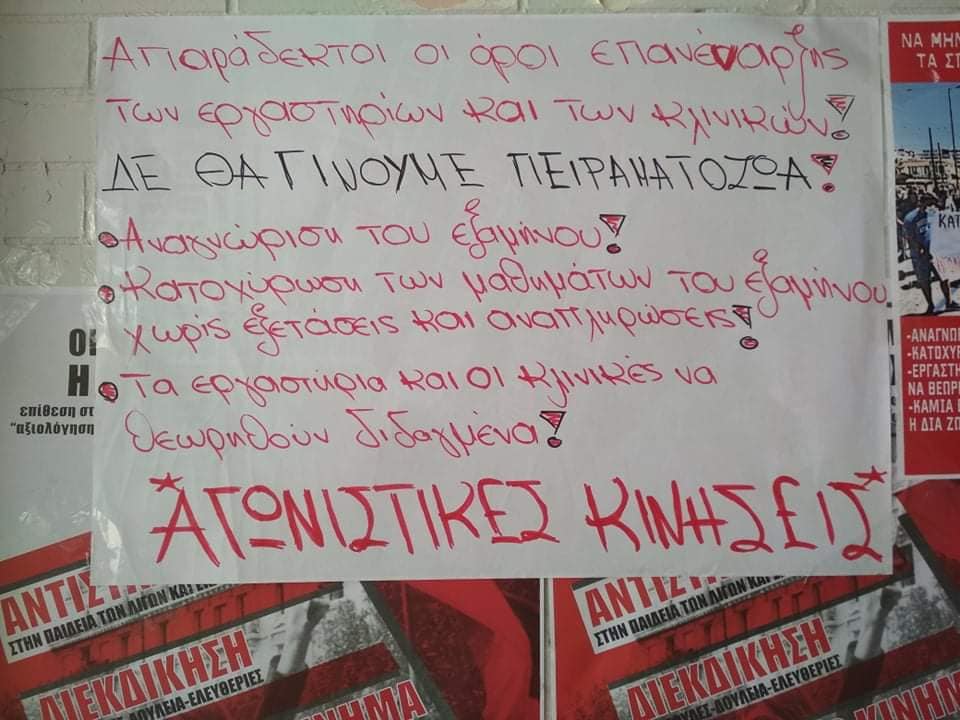 Απαράδεκτοι οι όροι επανέναρξης
των εργαστηρίων και των κλινικών!
ΔΕ ΘΑ ΓΙΝΟΥΜΕ ΠΕΙΡΑΜΑΤΟΖΩΑ!
• Αναγνώριση του εξαμήνου!
• Κατοχύρωση των μαθημάτων του εξαμήνου
χωρίς εξετάσεις και αναπληρώσεις!
• Τα εργαστήρια και οι κλινικές να
θεωρηθούν διδαγμένα!
*ΑΓΩΝΙΣΤΙΚΕΣ ΚΙΝΗΣΕΙΣ*
ΝΑ ΜΗΝ
ΤΑ ΣΠ
ΚΑΤ
-ΑΝΑΓΝΩ
-ΚΑΤΟΧΥΡ
-ΕΡΓΑΣΤΗ
ΝΑ ΘΕΩΡΗ
-ΚΑΜΙΑ
Η ΔΙΑ ΖΩ
ΟΙ
Η
επίθεση στ
"αξιολόγηση
ΑΝΤΙΣΤ
ΣΤΗΝ ΠΑΙΔΕΙΑ ΤΩΝ ΛΙΓΩΝ ΚΑΙ
ΔΙΕΚΔΙΚΗΣΗ
ΔΟΥΛΕΙΑ-ΕΛΕΥΘΕΡΙΕΣ
ΚΙΝΗΜΑ
ΑΝΤΙΣΤ
ΣΤΗΝ ΠΑΙΔΕΙΑ ΤΩΝ ΛΙΓΩΝ ΚΑΙ
ΔΙΕΚΔΙΚΗΣΗ
ΣΠΟΥΔΕΣ-ΔΟΥΛΕΙΑ-ΕΛΕΥΘΕΡΙΕΣ
ΚΙΝΗΜ